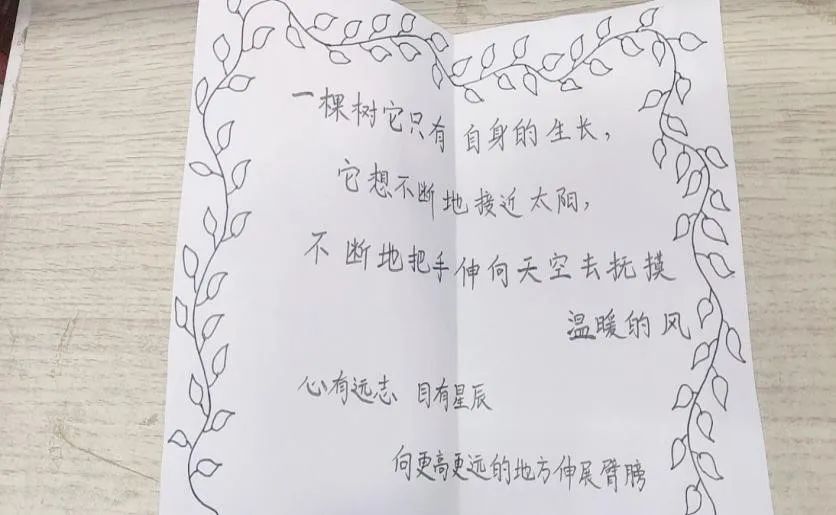 一棵树它只有自身的生长，
它想不断地接近太阳，
不断地把手伸向天空去抚摸
温暖的风
心有远志 目有星辰
向更高更远的地方伸展臂膀